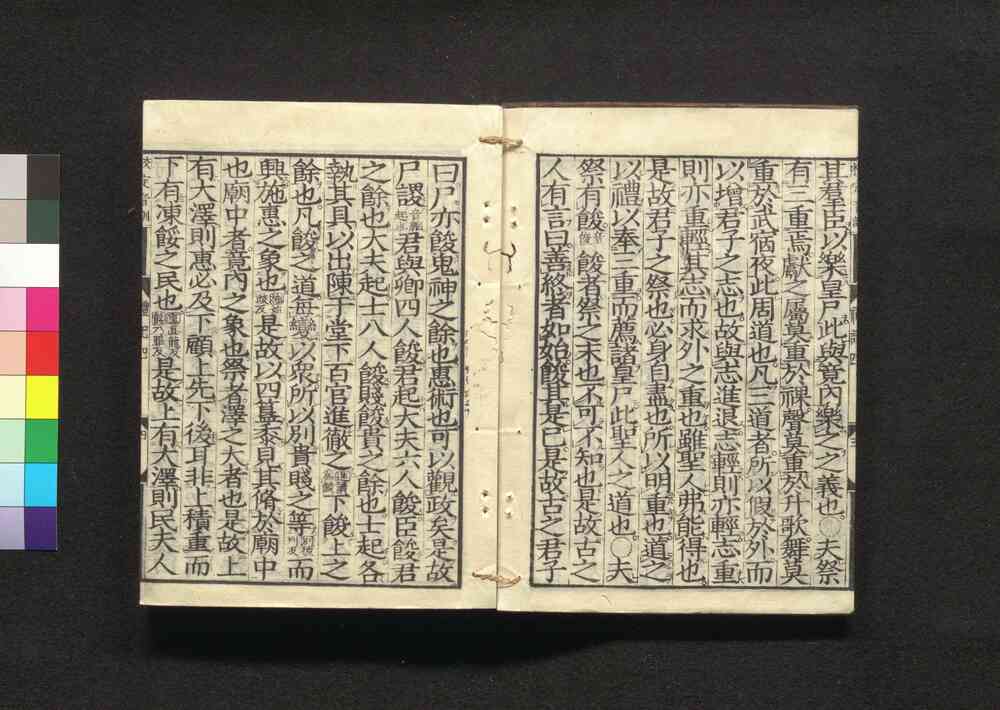 其羣臣以樂皇尸此與竟內樂之之義也○夫祭
有三重焉獻之屬莫重於祼聲莫重於升歌舞莫
重於武宿夜此周道也凡三道者所以假於外而
以增君子之志也故與志進退志輕則亦輕志重
則亦重輕其志而求外之重也雖聖人弗能得也
是故君子之祭也必身自盡也所以明重也道之
以禮以奉三重而薦諸皇尸此聖人之道也○夫
祭有餕餕者祭之末也不可不知也是故古之
人有言曰善終者如始餕其是已是故古之君子
曰尸亦餕鬼神之餘也惠術也可以觀政矣是故
尸謖君與卿四人餕君起大夫六人餕臣餕君
之餘也大夫起士八人餕賤餕貴之餘也士起各
執其具以出陳于堂下百官進徹之下餕上之
餘也凡餕之道每變以衆所以別貴賤之等而
興施惠之象也是故以四簋黍見其脩於廟中
也廟中者竟內之象也祭者澤之大者也是故上
有大澤則惠必及下顧上先下後耳非上積重而
下有凍餒之民也是故上有大澤則民夫人